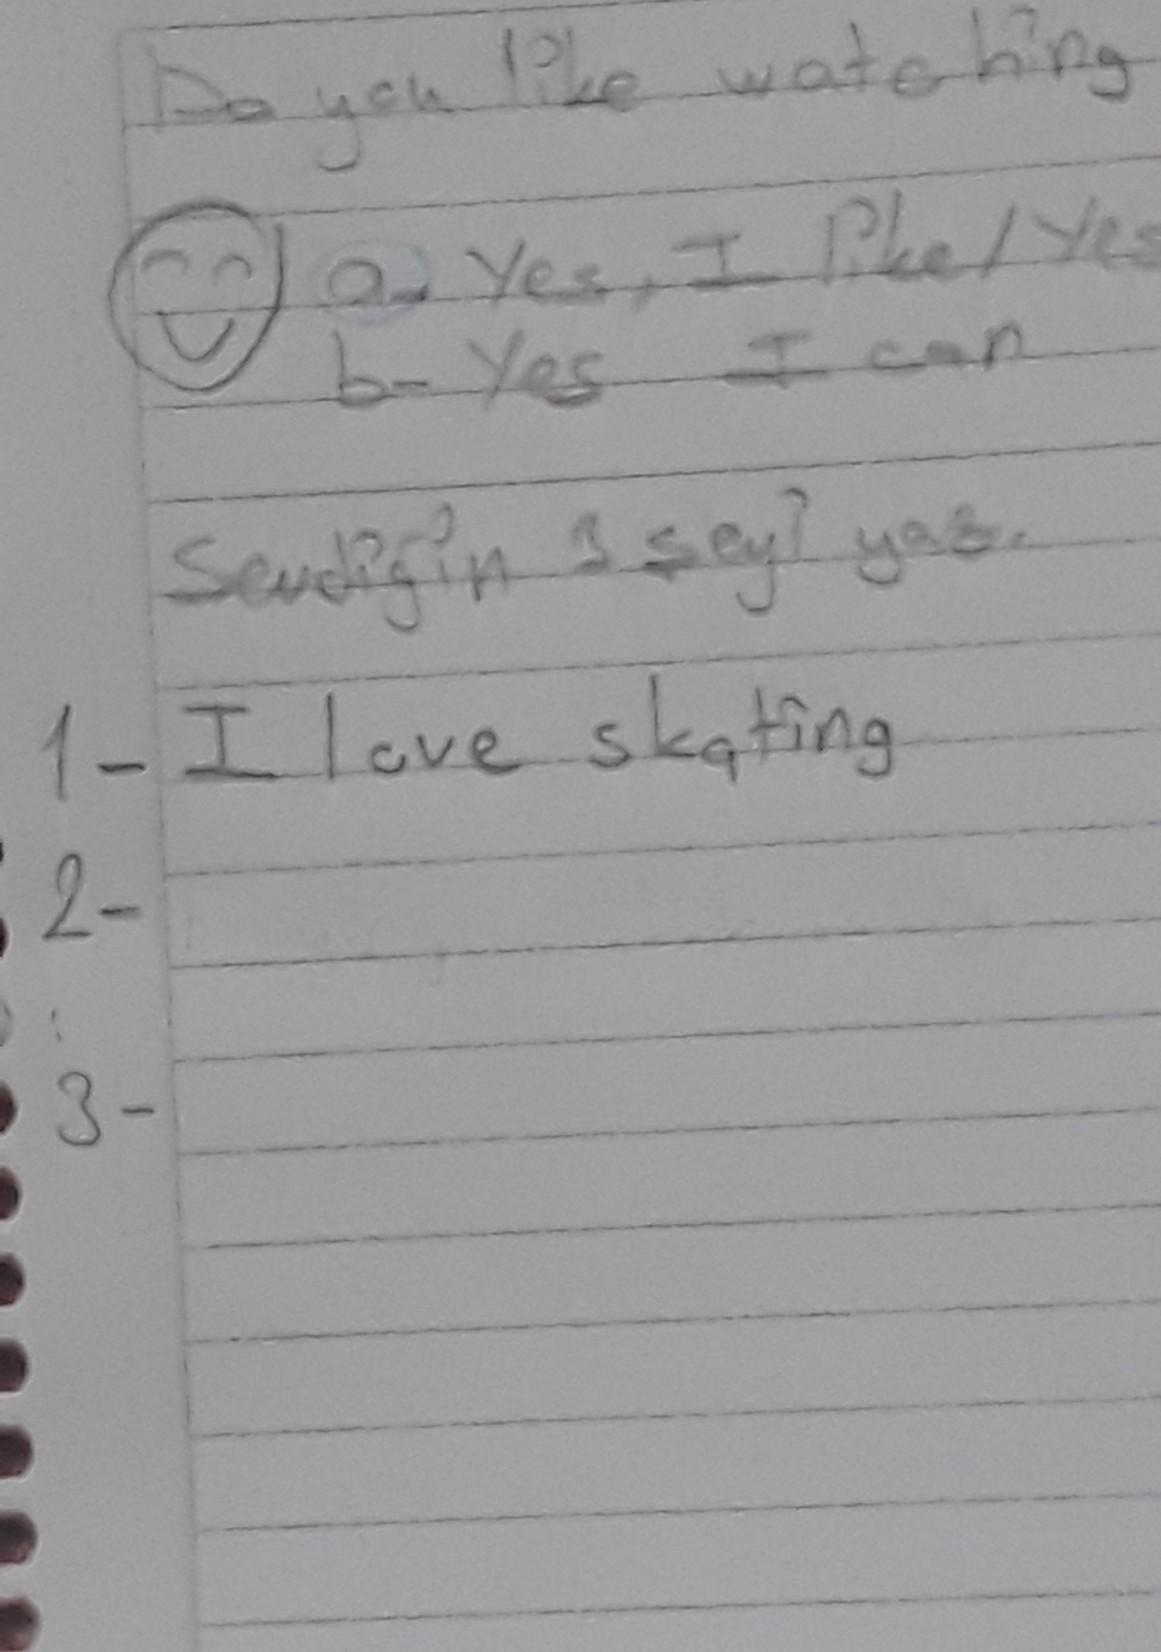 Do you like watching
a- Yes, I like / Yes
b- Yes I can
Sevdiğin 3 şeyi yaz.
1- I love skating
2-
3-